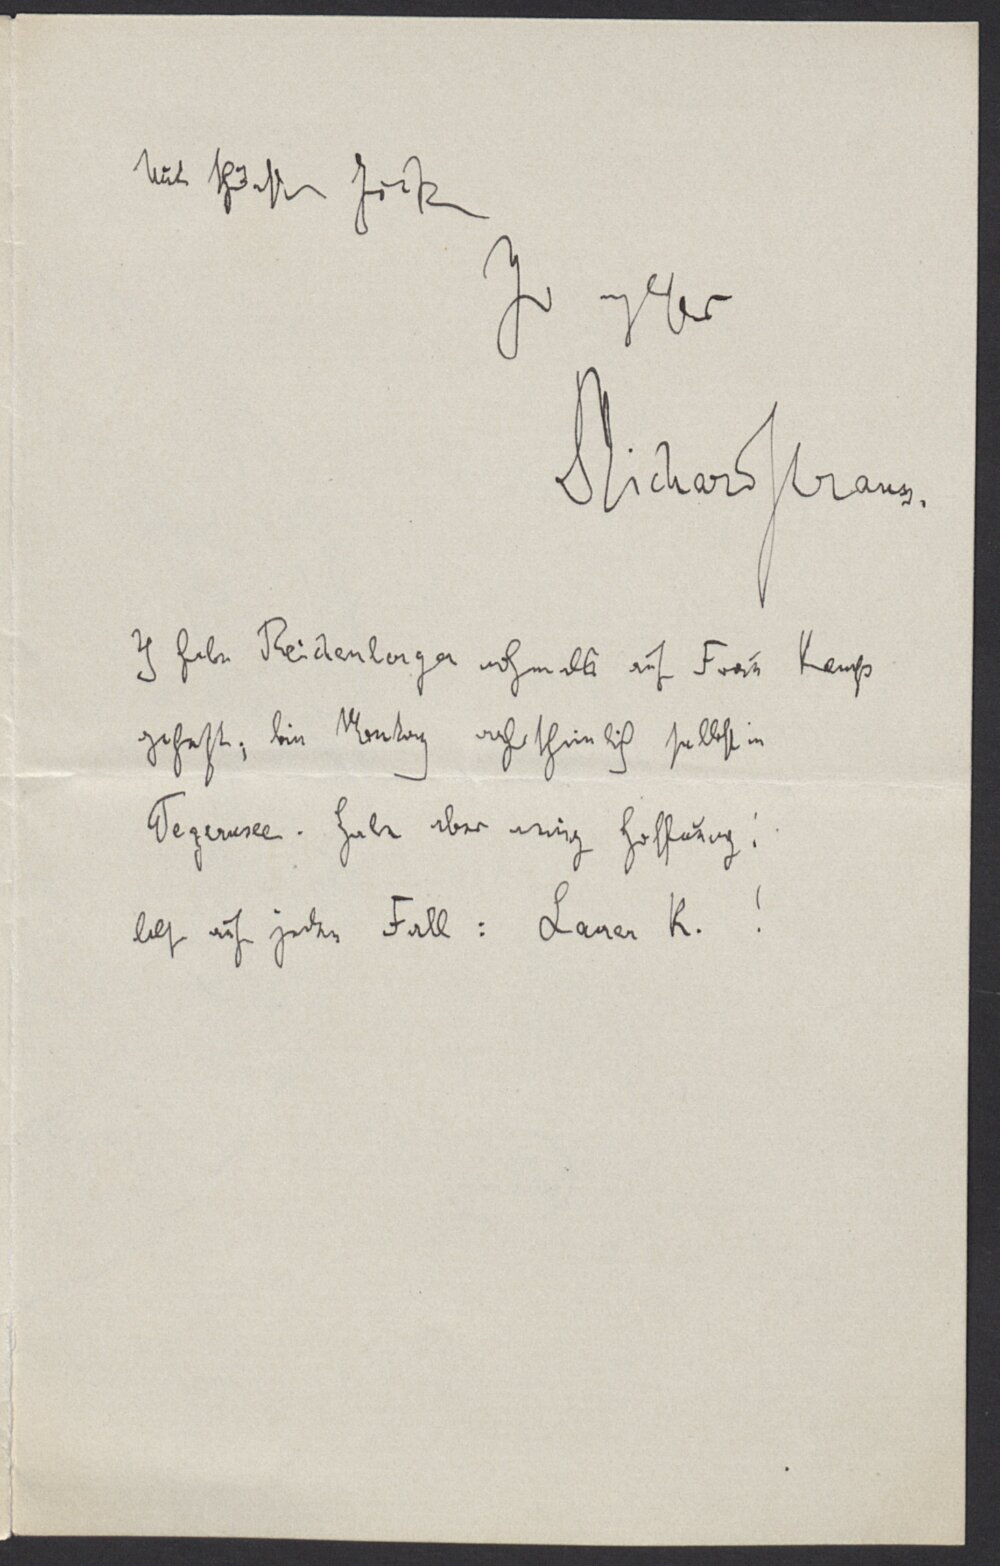 Mit schönsten Grüßen
Ihr
Richard Strauss.
Ich habe Reichenberger nochmals auf Frau Kemp
gehetzt; bin Montag wahrscheinlich selbst in
Tegernsee. Habe aber wenig Hoffnung!
auf jeden Fall: K.!